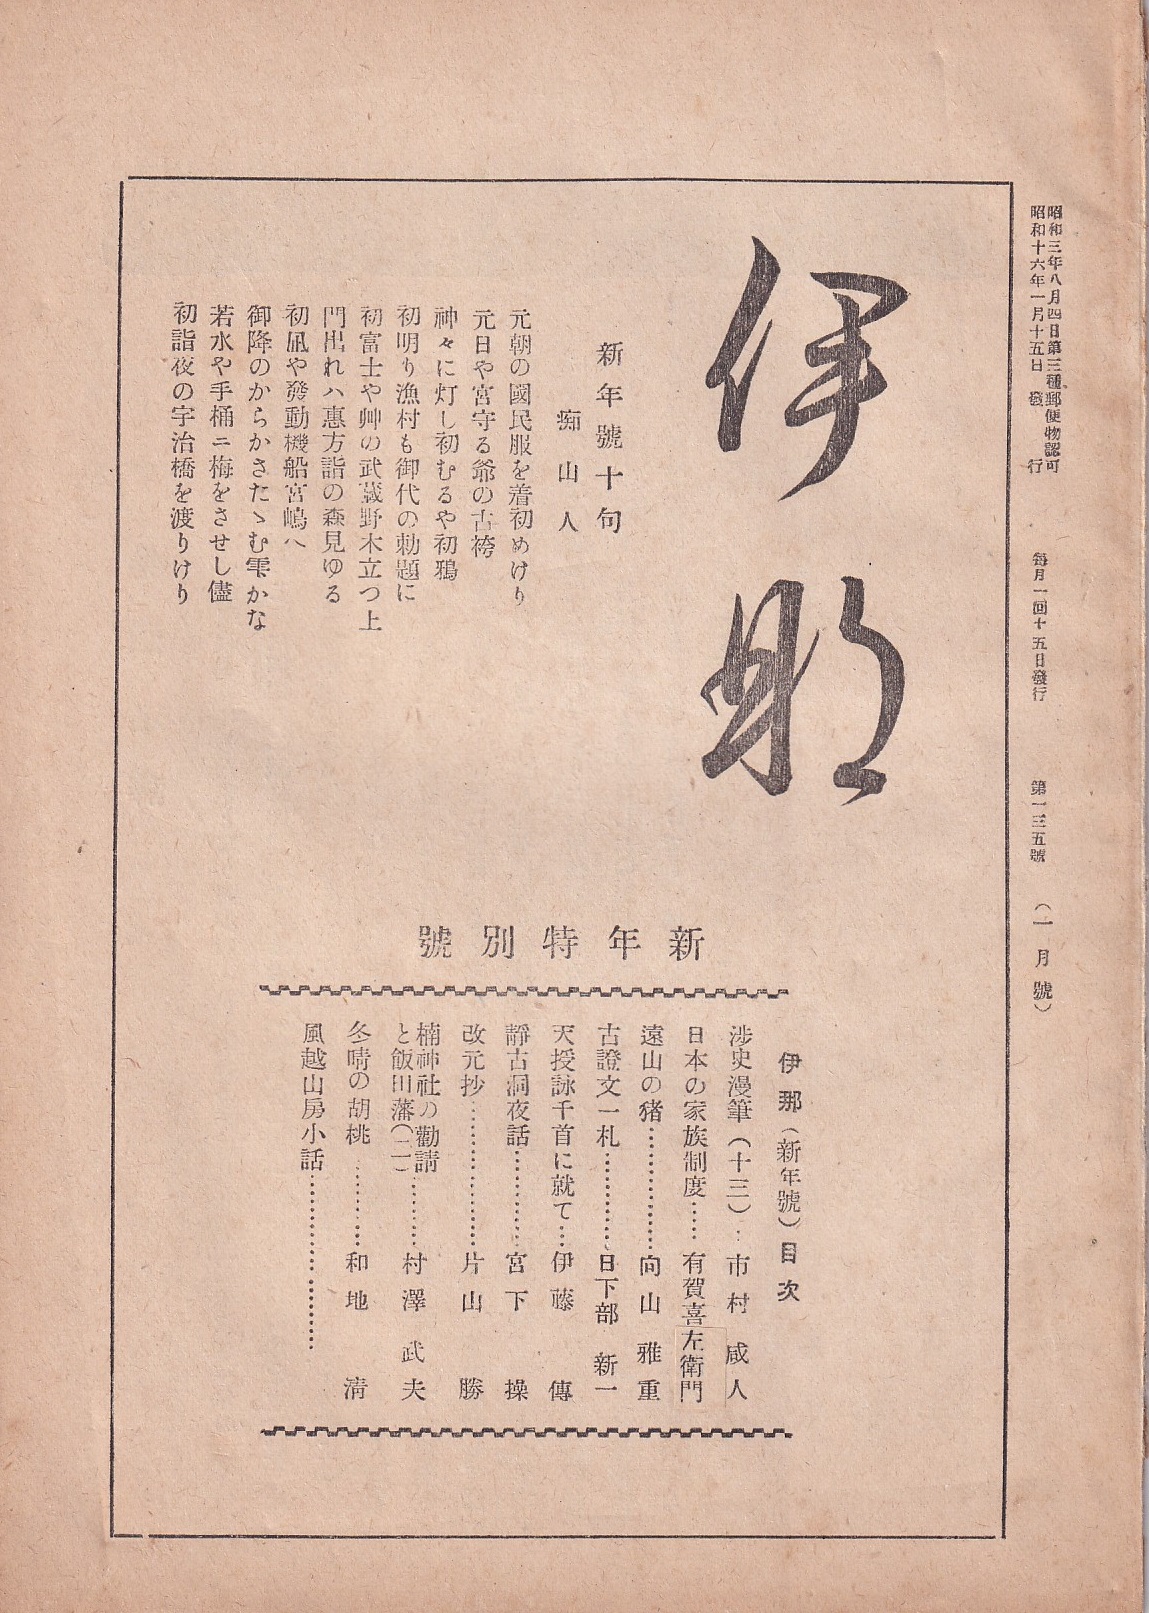 昭和三年八月四日第三種郵便物認可
昭和十六年一月十五日 發行
每月一回十五日發行
第一三五號
(一月號)
伊那
新年號十句
痴山人
元朝の國民服を着初めけり
元日や宮守る爺の古袴
神々に灯し初むるや初鴉
初明り漁村も御代の勅題に
初富士や艸の武藏野木立つ上
門出れハ惠方詣の森見ゆる
初凪や發動機船宮嶋へ
御降のからかさたゝむ雫かな
若水や手桶ニ梅をさせし儘
初詣夜の宇治橋を渡りけり
新年特別號
伊那(新年號)目次
涉史漫筆(十三)‥市村咸人
日本の家族制度……有賀喜左衛門
遠山の猪……………向山雅重
古證文一札…………日下部新一
天授詠千首に就て…伊藤傳
靜古洞夜話…………宮下操
改元抄………………片山勝
楠神社の勸請
と飯田藩(二)………村澤武夫
冬晴の胡桃…………和地清
風越山房小話……………………